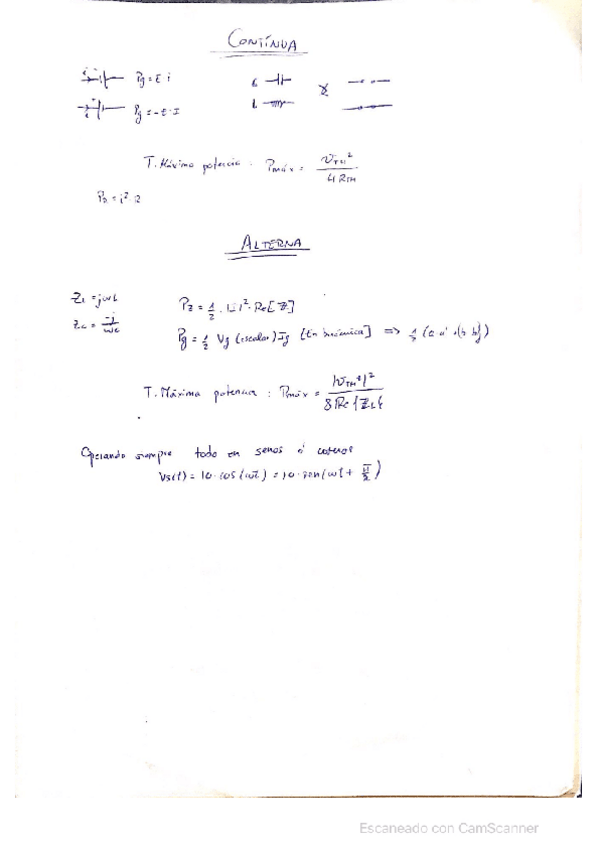 CONTÍNUA
Pg = E i
Pg = -E · I
C
L
T. Máxima potencia : Pmáx = VTH² / 4 RTH
PR = i² R
ALTERNA
ZL = jωL
ZC = -j / ωC
PZ = 1/2 · |I|² · Re[Z]
Pg = 1/2 Vg (escalar) Ig [En binómica] => 1/2 (a a' + (b b'))
T. Máxima potencia : Pmáx = |VTH|² / 8 Re{ZL}
Operando siempre todo en senos ó cosenos
Vs(t) = 10 · cos(ωt) = 10 · sen(ωt + π/2)
Escaneado con CamScanner